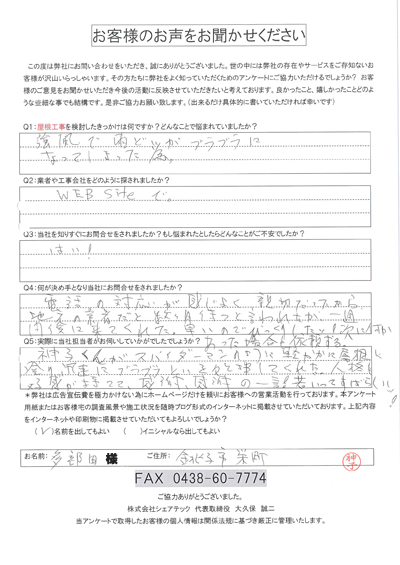 お客様のお声をお聞かせください
この度は弊社にお問い合わせをいただき、誠にありがとうございました。世の中には弊社の存在やサービスをご存知ないお
客様が沢山いらっしゃいます。その方たちに弊社をよく知っていただくためのアンケートにご協力いただけるでしょうか? お客
様のご意見をお聞かせいただき今後の活動に反映させていただきたいと考えております。良かったこと、嬉しかったことどのよ
うな些細な事でも結構です。是非ご協力お願い致します。(出来るだけ具体的に書いていただければ幸いです)
Q1:屋根工事を検討したきっかけは何ですか?どんなことで悩まれていましたか?
強風で雨どいがブラブラに
なってしまった為。
Q2:業者や工事会社をどのように探されましたか?
WEB Siteで。
Q3:当社を知りすぐにお問合せをされましたか?もし悩まれたとしたらどんなことがご不安でしたか?
はい!
Q4:何が決め手となり当社にお問合せをされましたか?
電話の対応が感じよく親切だったから
地元の業者だと 待つと言われたが一週
間後に来てくれた。早いのでびっくりした!!次に何か
Q5:実際に当社担当者がお伺いしていかがでしたでしょうか?
あった場合も依頼する
神子くんがスパイダーマンのように 屋根に
登り
*弊社は広告宣伝費を極力かけない為にホームページだけを頼りにお客様への営業活動を行っております。本アンケート
用紙またはお客様宅の調査風景や施工状況を随時ブログ形式のインターネットに掲載させていただいております。上記内容
をインターネットや印刷物に掲載させていただいてもよろしいでしょうか?
(✓)名前を出してもよい ( )イニシャルなら出してもよい
お名前: 多部田 様 ご住所: 市栄町
神子
FAX 0438-60-7774
ご協力ありがとうございました。
株式会社シェアテック 代表取締役 大久保 誠二
当アンケートで取得したお客様の個人情報は関係法規に基づき厳正に管理いたします。